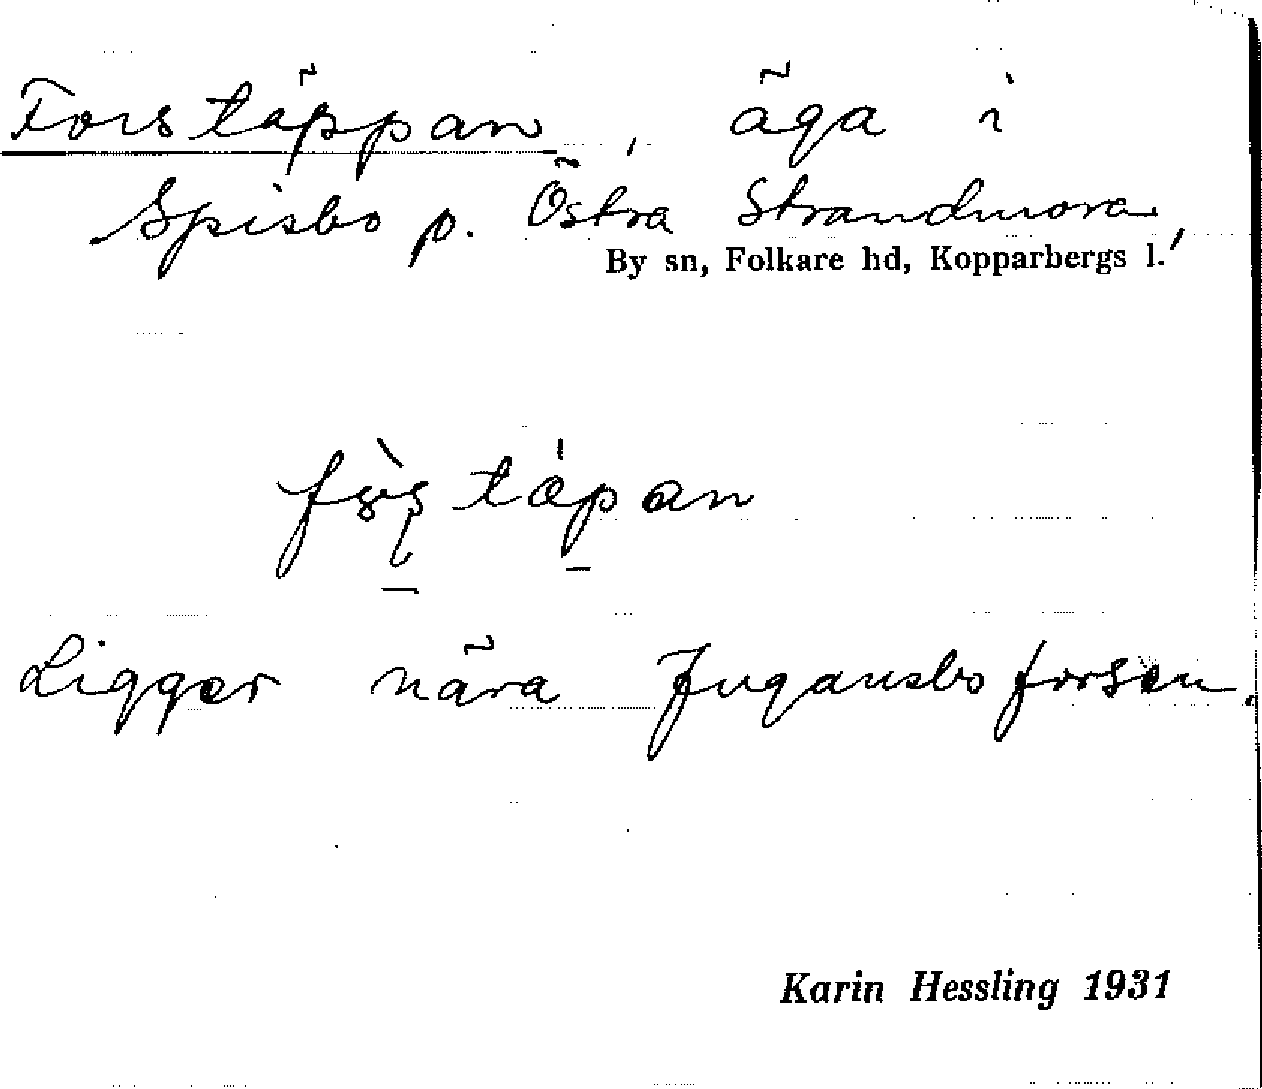 Forstäppan, äga i
Spisbo p. Östra Strandmora,
By sn, Folkare hd, Kopparbergs l.
Ligger nära Jugansboforsen.
Karin Hessling 1931